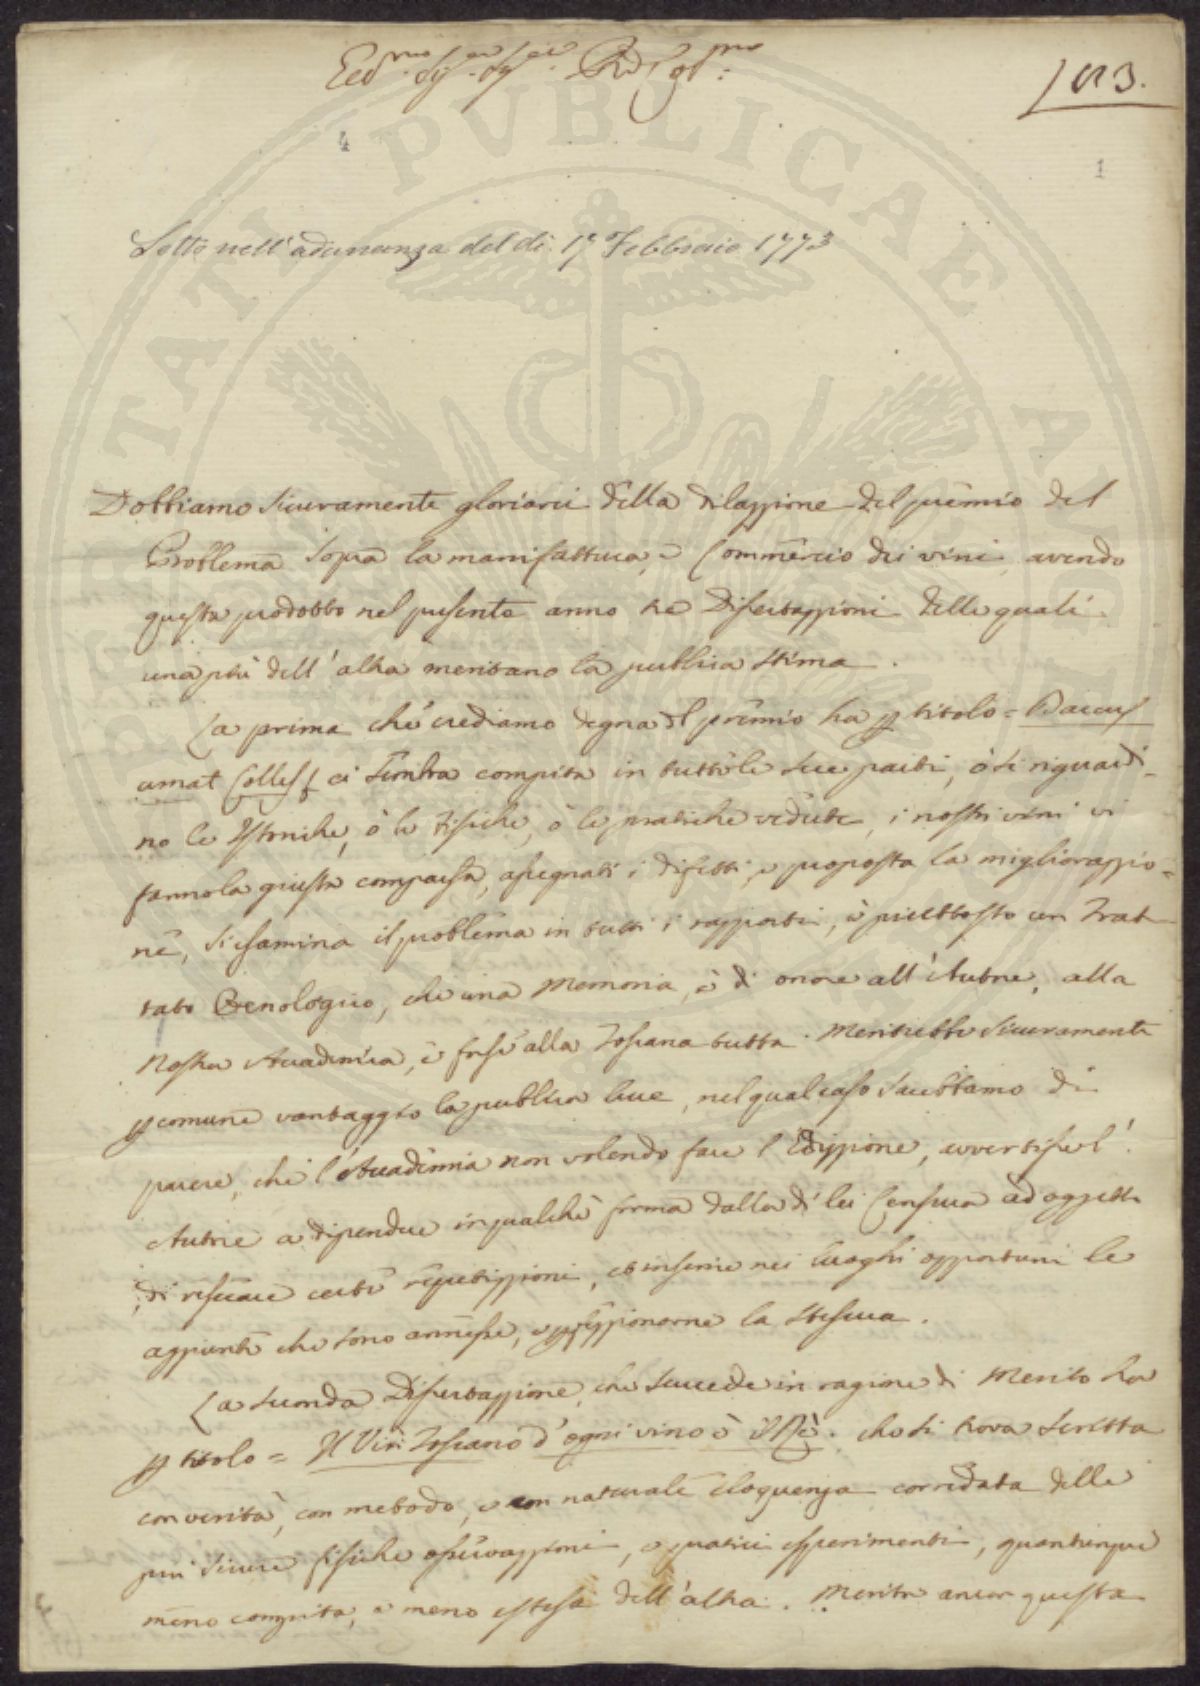 103.
4
1
Letto nell'adunanza del dì 17 Febbraio 1773
PVBLICAE
Dobbiamo sicuramente gloriarci della dilazzione del premio del
Problema sopra la manifattura, e Commercio dei vini, avendo
questa prodotto nel presente anno tre Dissertazzioni delle quali
una più dell'altra meritano la publica stima.
La prima che crediamo degna del premio ha p titolo = Bacus
amat Colles ci sembra compita in tutte le sue parti, ò si riguardi-
no le Istoriche, ò le Fisiche, ò le pratiche vedute, i nostri vini vi
fanno la giusta comparsa, assegnati i difetti, e proposta la migliorazzio=
ne, si esamina il problema in tutti i rapporti, è piuttosto un Trat
tato Oenologico, che una Memoria, e di onore all'Autore, alla
Nostra Accademia, e forse alla Toscana tutta. Meritrebbe sicuramente
p comune vantaggio la publica luce, nel qual caso saressamo di
parere, che l'Accademia non volendo fare l'Edizzione, avvertisse l'
Autore a dipendere in qualche forma dalla di lei Censura ad oggetto
di resecare certe repetizzioni, et inserire nei luoghi opportuni le
aggiunte che sono annesse, e perfezzionarne la stesura.
La seconda Dissertazzione, che succede in ragione di Merito ha
p titolo = Il Vin Toscano d'ogni vino è il Rè. che si trova scritta
con verità, con metodo, e con naturale eloquenza corredata delle
più sicure fisiche osservazzioni, e pratici esperimenti, quantunque
meno compita, e meno estesa dell'altra. Merita ancor questa